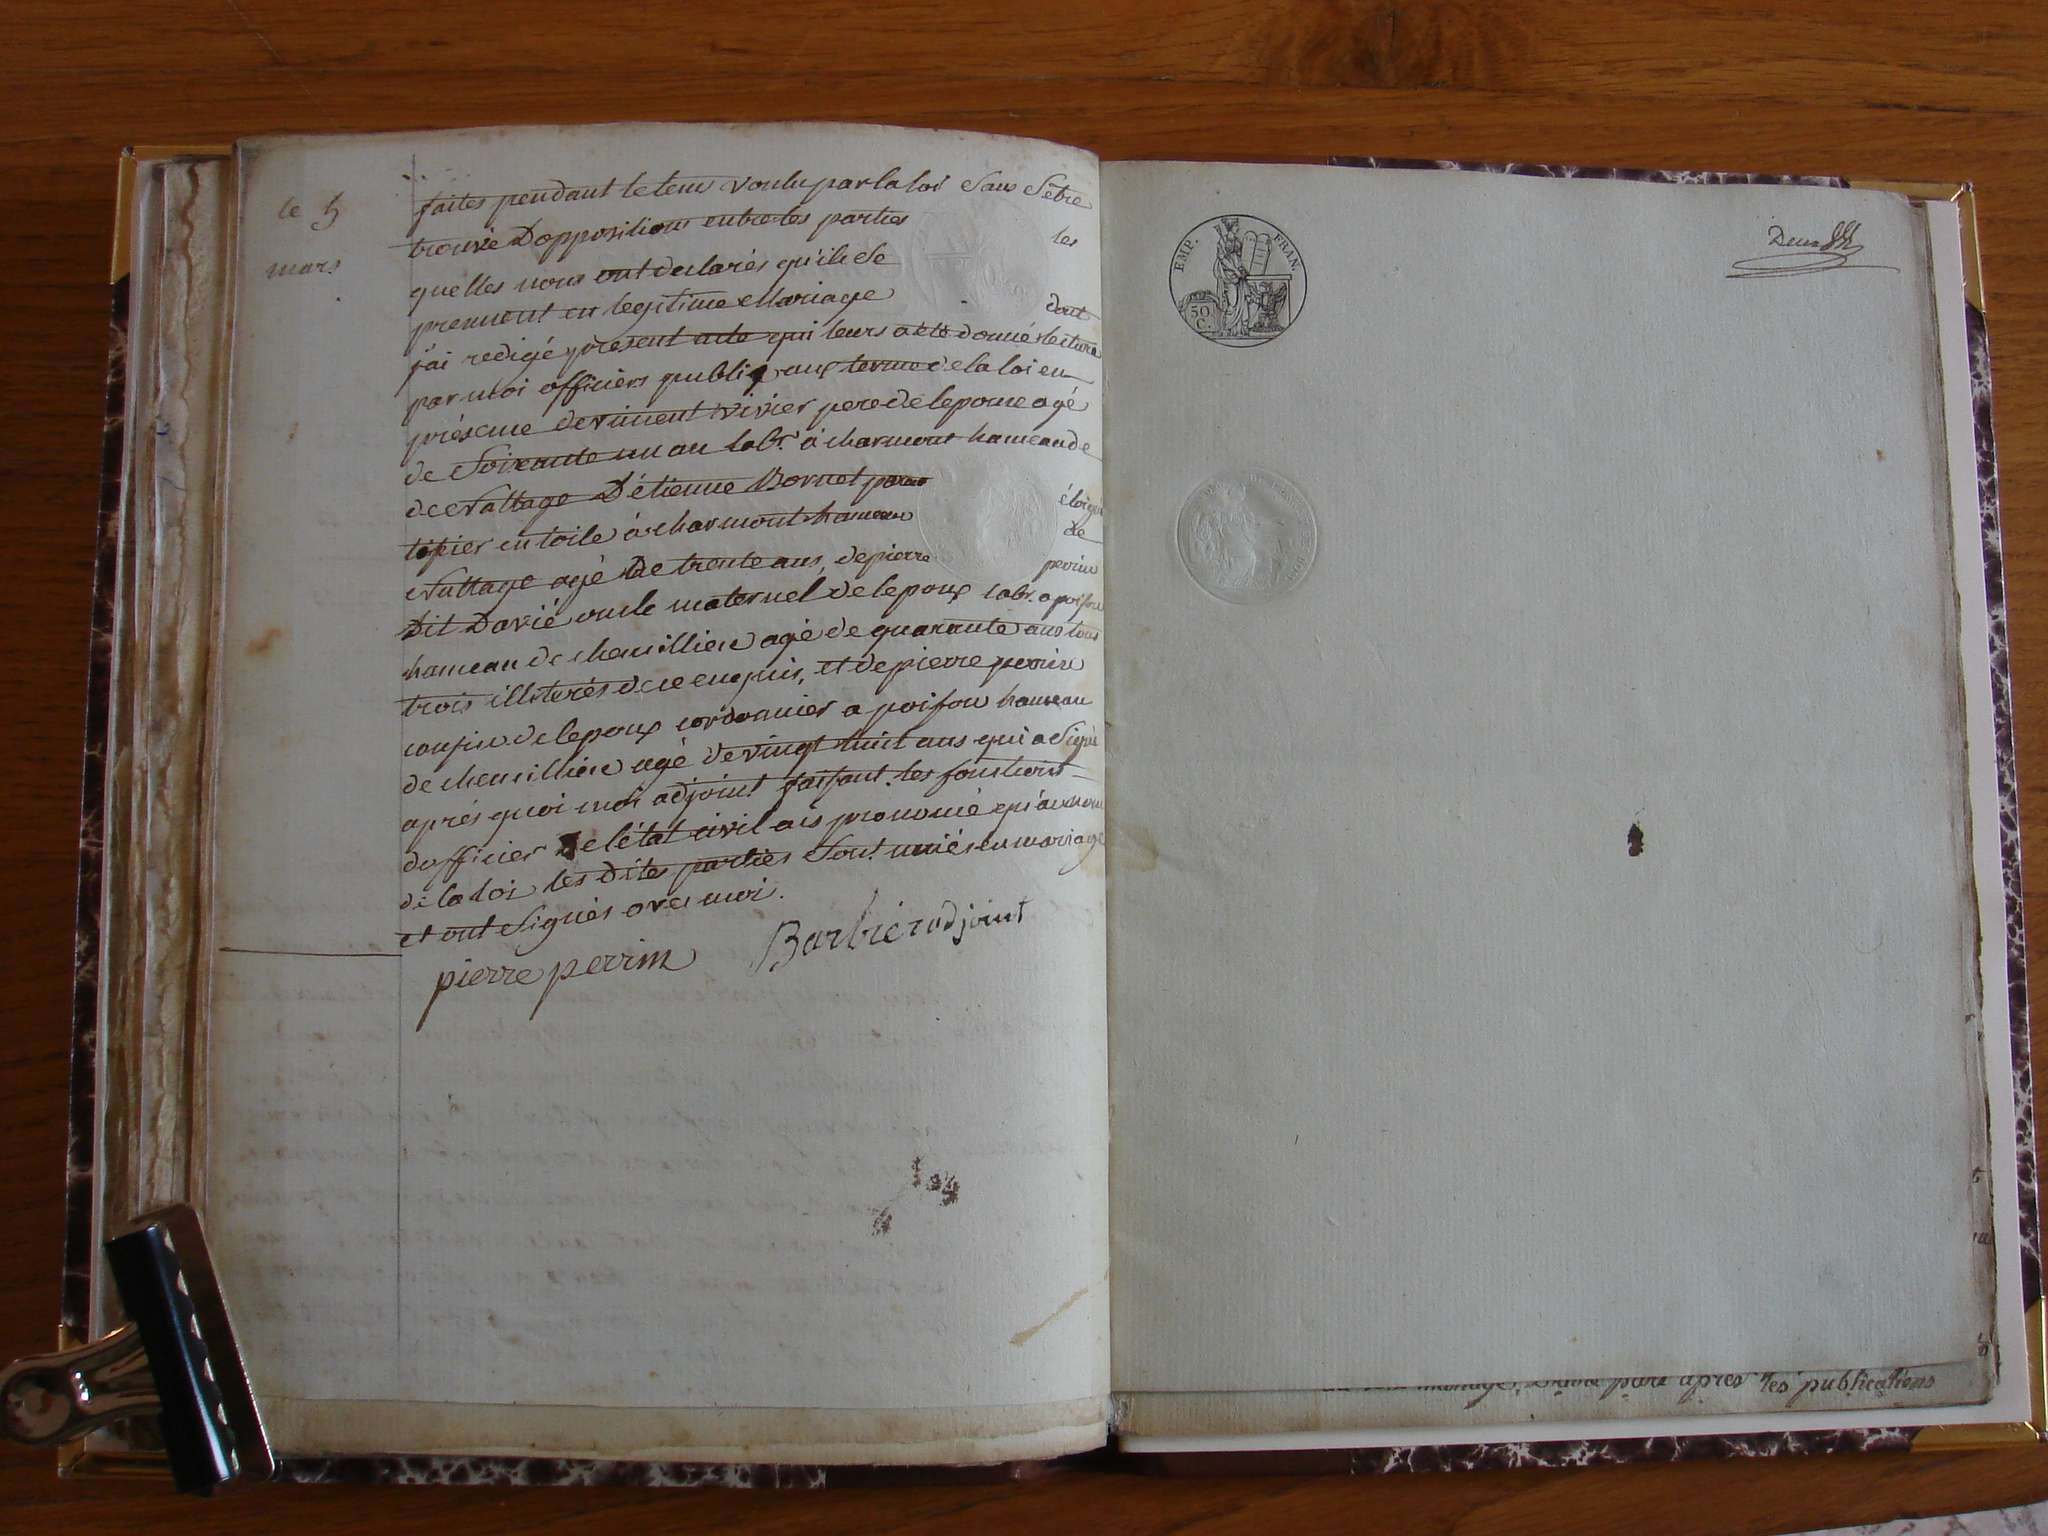 le 5
mars
faites pendant le tems voulu par la loi Sans Sêtre
trouvé Doppositions entre les parties les
quelles nous ont declarés qu'ils Se
prennent en legitime Mariage dont
j'ai redigé present acte qui leurs a été donné lecture
par moi officiers public aux terme de la loi en
présence de vincent vivier pere de lepouse agé
de Soixante un an labr. à charmont hameau de
de Nattage D'étienne Bornet paran éloigné
tissier en toile à charmont hameau de
Nattage agé De trente ans, de pierre perrin
Dit Davié oncle maternel de lepoux labr. a poisou
hameau de chemillieu agé de quarante ans tous
trois illiterés de ce enquis, et de pierre perrin
cousin de lepoux cordonnier a poisou hameau
de chemillieu agé de vingt huit ans qui a Signé
aprés quoi moi adjoint faisant les fonctions
dofficier de létat civil ais prononcé qu'au nom
de la Loi les dites parties Sont uniés en mariage
et ont Signés avec moi.
pierre perrin Barbier adjoint
EMP. FRAN.
50
C.
Deux
mariage, D'autre part après les publications